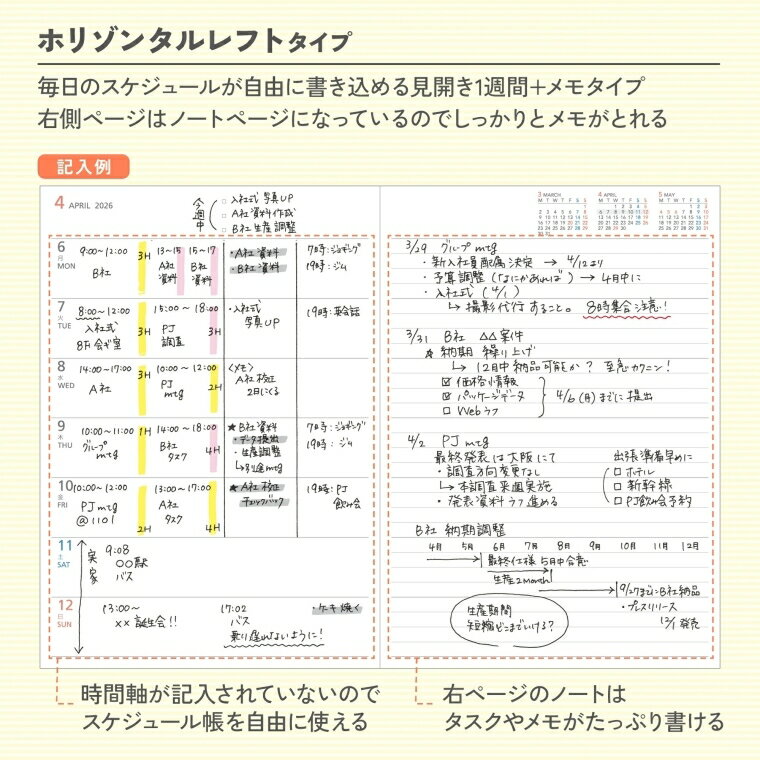 ホリゾンタルレフトタイプ
毎日のスケジュールが自由に書き込める見開き1週間+メモタイプ
右側ページはノートページになっているのでしっかりとメモがとれる
記入例
4 APRIL 2026
今週中
□ 入社式 写真UP
□ A社 資料作成
□ B社 生産調整
3 MARCH
4 APRIL
5 MAY
6 月 MON
9:00~12:00 3H 13~15 15~17
B社 A社資料 B社資料
・A社 資料
・B社 資料
7時:ジョギング
19時:ジム
7 火 TUE
8:00~12:00 3H 15:00~18:00 3H
入社式 8F会ギ室
PJ 調査
・入社式 写真UP
19時:英会話
8 水 WED
14:00~17:00 3H 10:00~12:00 2H
A社 PJ mtg
<メモ>
A社 校正
2日にくる
9 木 THU
10:00~11:00 1H 14:00~18:00 4H
グループ mtg
B社 タスク
★B社 資料
・データ提出
・生産調整
↳別途mtg
7時:ジョギング
19時:ジム
10 金 FRI
10:00~12:00 2H 13:00~17:00 4H
PJ mtg @1101
A社 タスク
★A社 校正
チェックバック
19時:PJ 飲み会
11 土 SAT
実家
9:08
○○駅
バス
12 日 SUN
13:00~
××誕生会!!
17:02
バス
乗り遅れないように!
・ケーキ焼く
3/29 グループ mtg
・新入社員配属決定 → 4/12より
・予算調整(なにかあれば) → 4月中に
・入社式(4/1)
↳撮影代行すること。 8時集合注意!
3/31 B社 △△案件
★納期 繰り上げ
↳12月中納品可能か? 至急カクニン!
☑価格情報
☑パッケージデータ
□Webラフ
4/6(月)までに提出
4/2 PJ mtg
最終発表は大阪にて
・調査方向変更なし
↳本調査来週実施
・発表資料ラフ進める
出張準備早めに
□ホテル
□新幹線
□PJ飲み会予約
B社 納期調整
4月 5月 6月 7月 8月 9月 10月 11月 12月
最終仕様 5月中合意
生産2month
9/27までにB社納品
・プレスリリース
12/1 発売
生産期間
短縮どこまでいける?
時間軸が記入されていないので
スケジュール帳を自由に使える
右ページのノートは
タスクやメモがたっぷり書ける